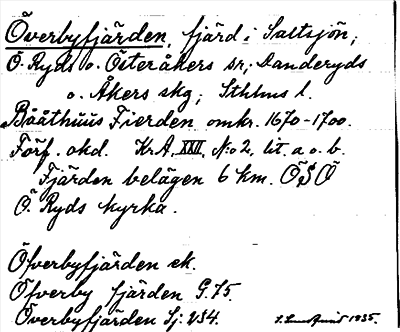 Överbyfjärden, fjärd i Saltsjön;
Ö. Ryds o. Österåkers sr; Danderyds
o. Åkers skg; Sthlms l.
Bååthüüs Fierden omkr. 1670-1700.
Förf. okd. Kr.A. XXII, N:o 2, lit. a o. b.
Fjärden belägen 6 km. ÖSÖ
Ö. Ryds kyrka.
Öfverbyfjärden ek.
Öfverby fjärden G. 75.
Överbyfjärden Sj: 234.
1935.